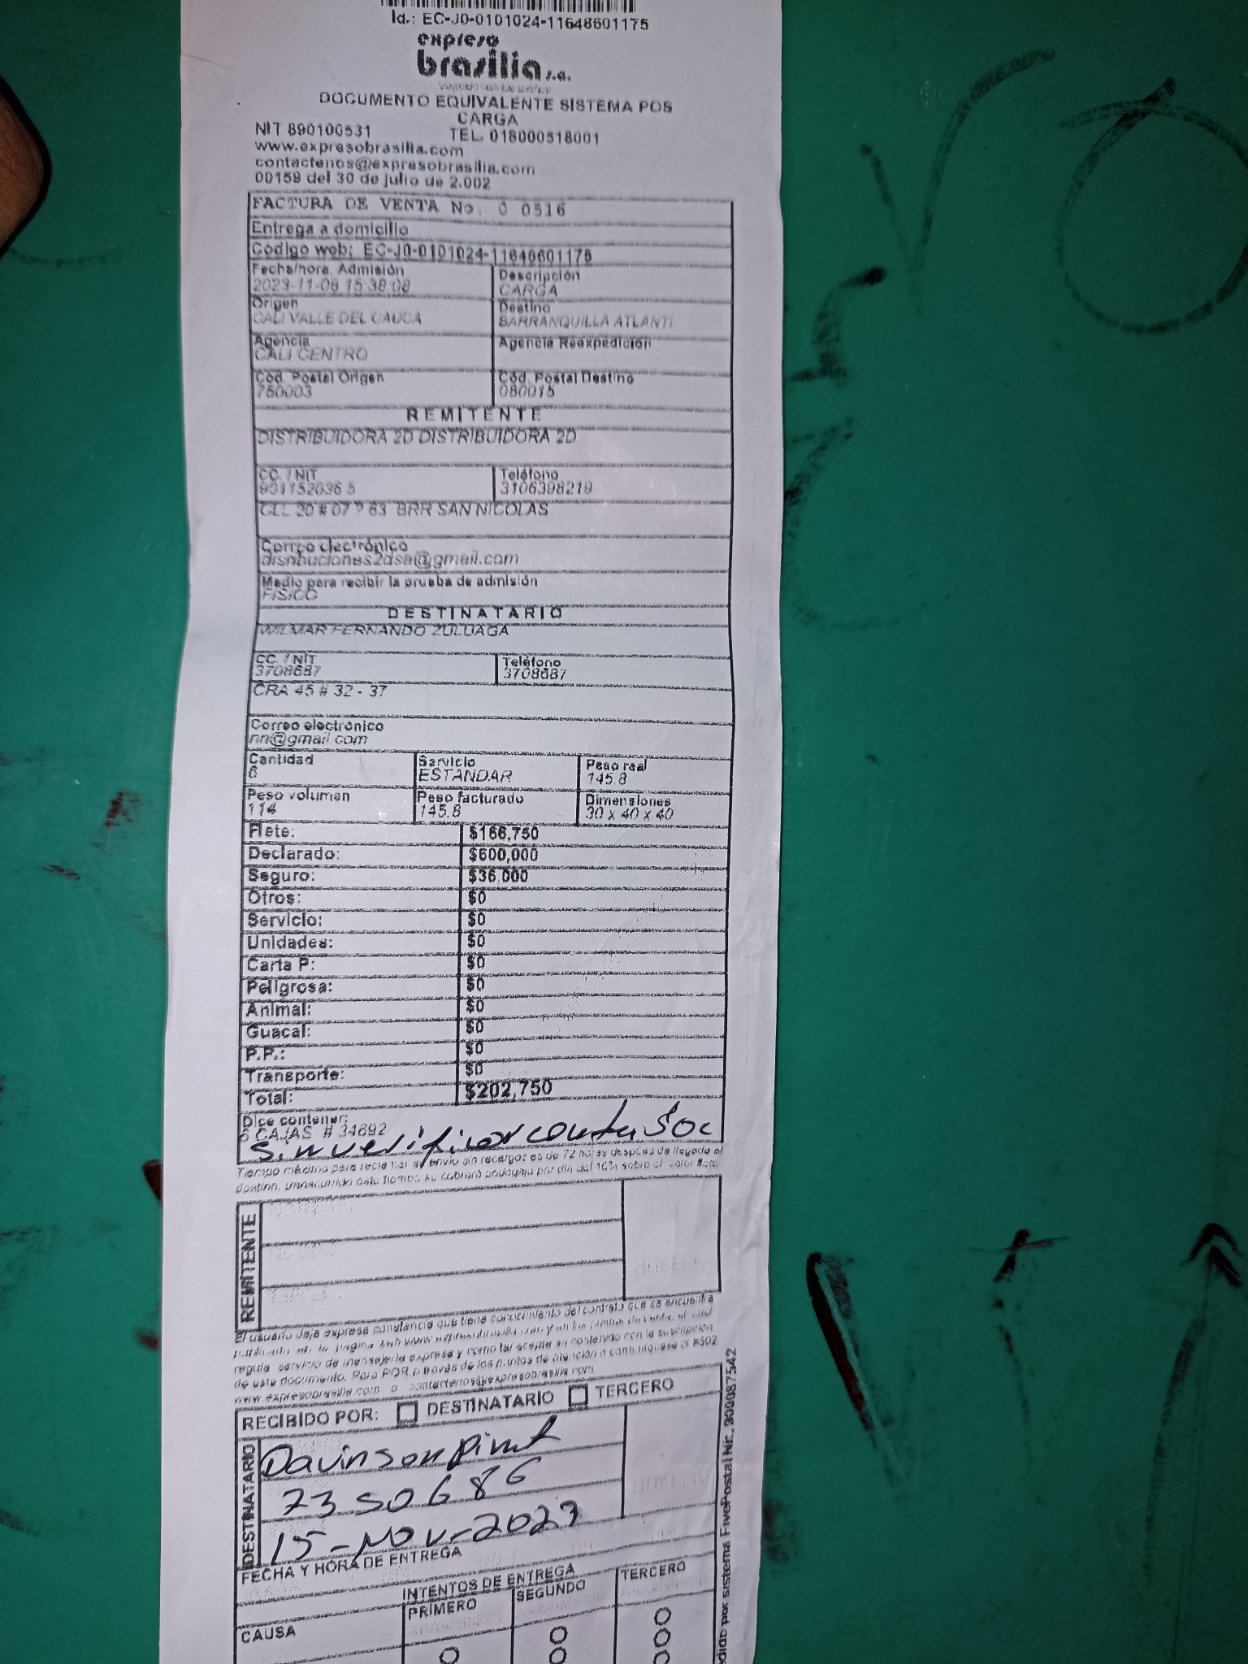 Id.: EC-J0-0101024-11648601175
expreso
brasilia s.a.
DOCUMENTO EQUIVALENTE SISTEMA POS
CARGA
NIT 890100531 TEL. 018000518001
www.expresobrasilia.com
contactenos@expresobrasilia.com
00159 del 30 de julio de 2.002
FACTURA DE VENTA No. 0 0516
Entrega a domicilio
Código web: EC-J0-0101024-11648601175
Fecha/hora. Admisión Descripción
2023-11-08 15:38:08 CARGA
Origen Destino
CALI VALLE DEL CAUCA BARRANQUILLA ATLANTI
Agencia Agencia Reexpedición
CALI CENTRO
Cód. Postal Origen Cód. Postal Destino
760003 080015
REMITENTE
DISTRIBUIDORA 2D DISTRIBUIDORA 2D
CC. / NIT Teléfono
901152036 5 3106398219
CLL 20 # 07 ? 63 BRR SAN NICOLAS
Correo electrónico
disribuciones2dsa@gmail.com
Medio para recibir la prueba de admisión
FISICO
DESTINATARIO
WILMAR FERNANDO ZULUAGA
CC. / NIT Teléfono
3708687 3708687
CRA 45 # 32 - 37
Correo electrónico
nn@gmail.com
Cantidad Servicio Peso real
6 ESTANDAR 145.8
Peso volumen Peso facturado Dimensiones
114 145.8 30 x 40 x 40
Flete: $166,750
Declarado: $600,000
Seguro: $36,000
Otros: $0
Servicio: $0
Unidades: $0
Carta P: $0
Peligrosa: $0
Animal: $0
Guacal: $0
P.P.: $0
Transporte: $0
Total: $202,750
Dice contener:
6 CAJAS # 34892
sin verificar
Tiempo máximo para reclamar el envío sin recargos es de 72 horas después de llegado al
destino, transcurrido este tiempo, se cobrará bodegaje por día del 10% sobre el valor flete
REMITENTE
El usuario deja expresa constancia que tiene conocimiento del contrato que se encuentra
regula servicio de mensajería expresa y como tal acepta su contenido con la suscripción
de este documento. Para PQR a través de los puntos de atención o comuníquese al #502
www.expresobrasilia.com o contactenos@expresobrasilia.com
RECIBIDO POR: DESTINATARIO TERCERO
DESTINATARIO
Davinson
7350686
15-NOV-2023
FECHA Y HORA DE ENTREGA
INTENTOS DE ENTREGA
CAUSA PRIMERO SEGUNDO TERCERO
por sistema FivePostal Nit. 900087542